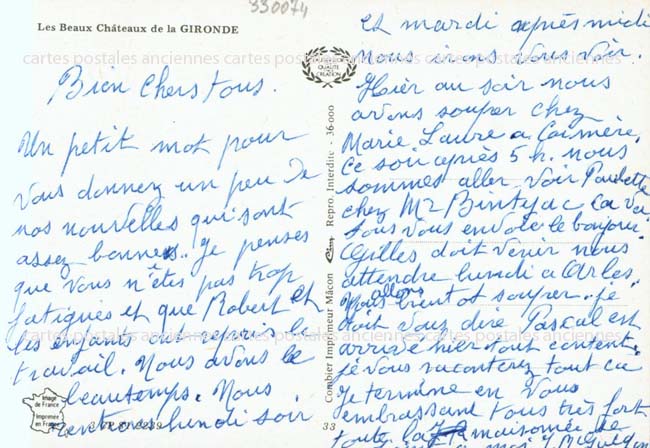 330074
Les Beaux Châteaux de la GIRONDE
cartes postales anciennes
Bien Chers tous.
Un petit mot pour
vous donnez un peu de
nos nouvelles qui sont
assez bonnes. je penses
que vous n'êtes pas trop
fatigués et que Robert et
les enfants ont repris le
travail. Nous avons le
beautemps. Nous
rentrons lundi soir
Image de France
Imprimée en France
QUALITÉ
CRÉATION
Combier Imprimeur Mâcon Cim Repro. Interdite - 36-000
33
et mardi après midi
nous irons vous voir.
Hier au soir nous
avons souper chez
Marie Laure a
Ce soir après 5 h. nous
sommes aller voir Paulette
chez Mr ça va
tous vous envoie le bonjour.
Gilles doit venir nous
attendre lundi a Arles.
Nous allons bientot souper. je
doit vous dire Pascal est
arrivé hier tout content
je vous raconterez tout ça
Je termine en vous
embrassant tous très fort
toute la maisonnée de